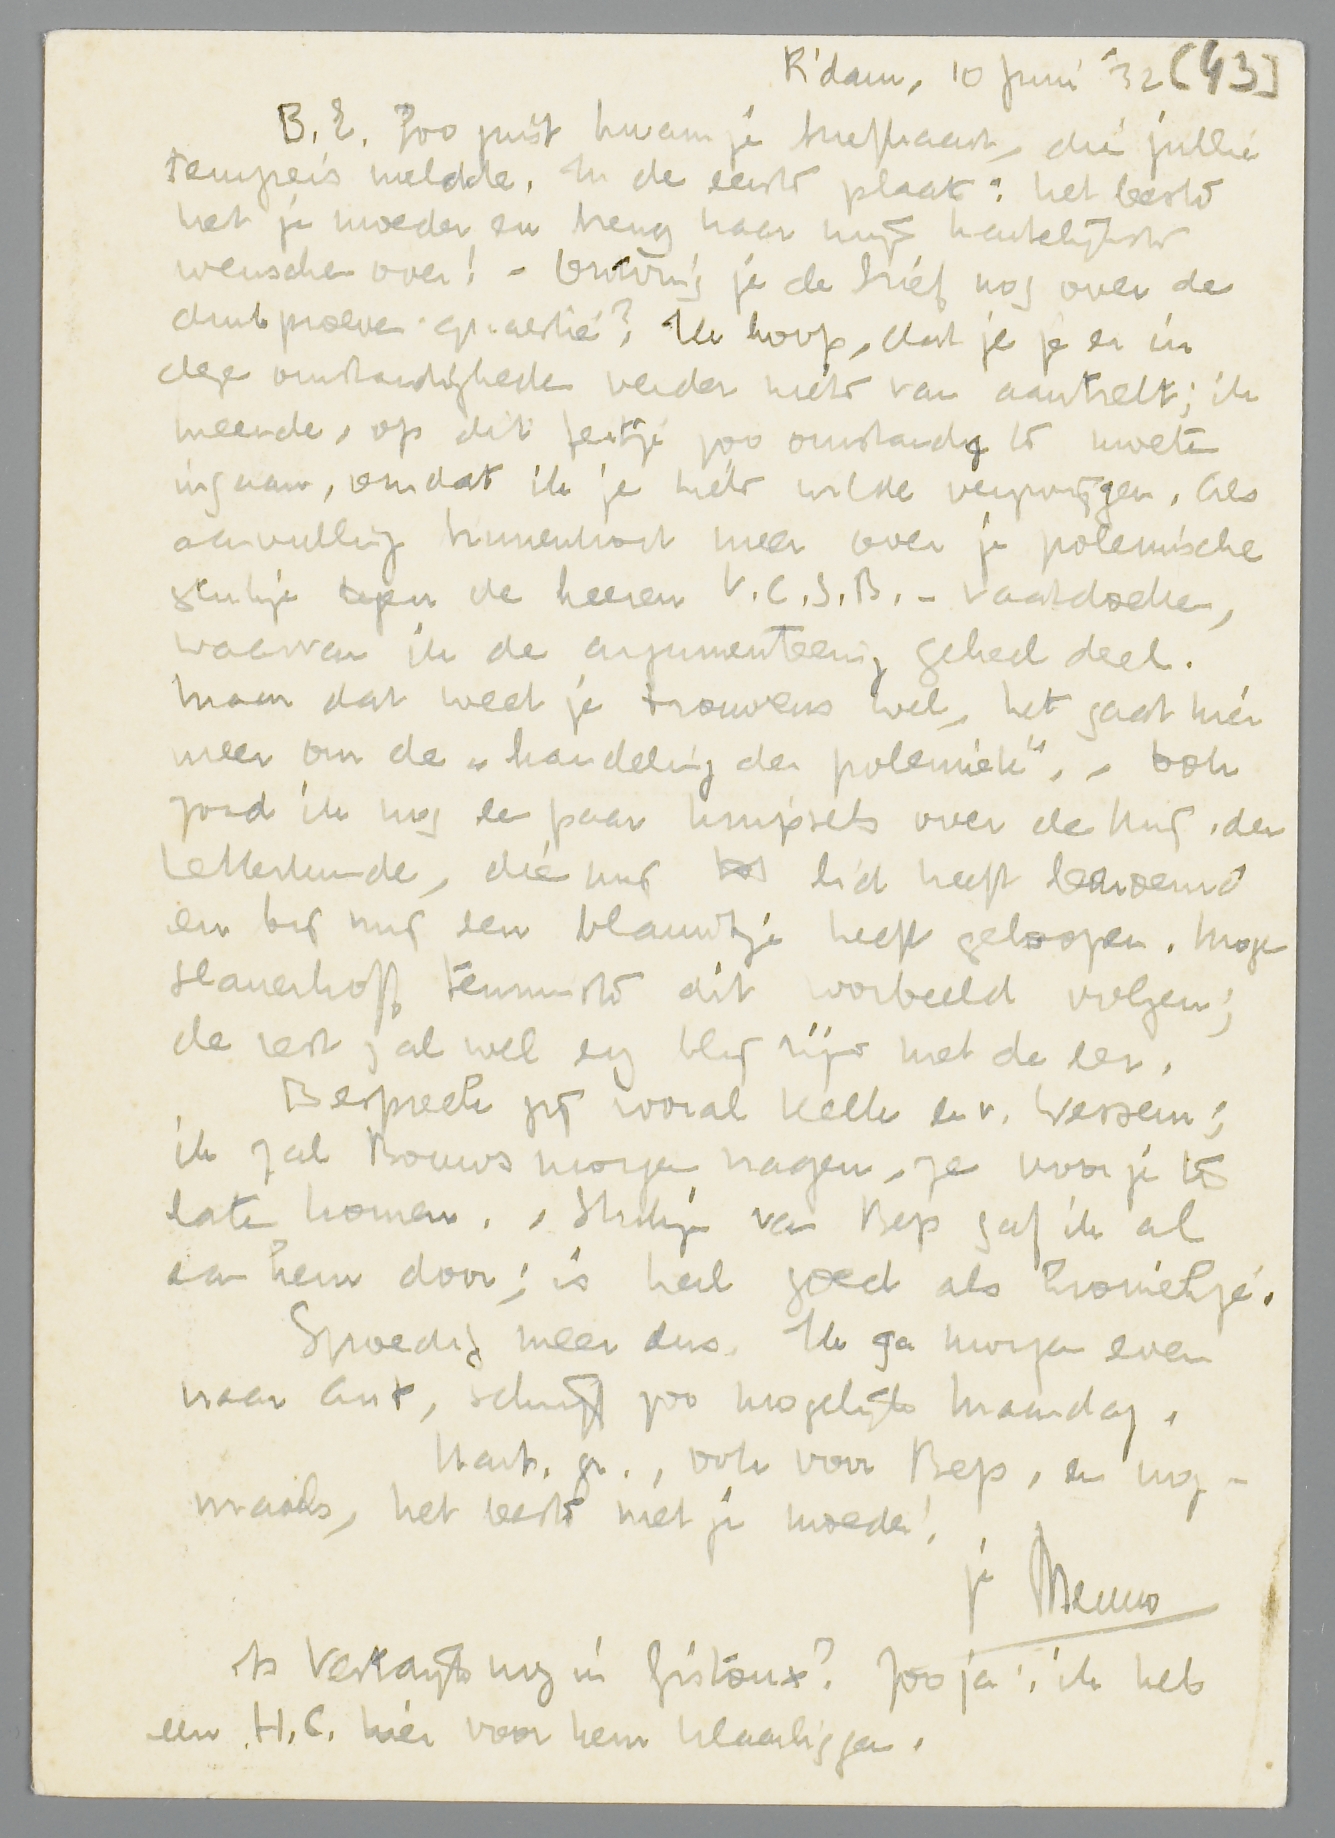 R'dam, 10 Juni '32 [43]
B.E. Zoo juist kwam je briefkaart, die jullie
terugreis meldde. In de eerste plaats: het beste
met je moeder en breng haar mijn hartelijkste
wenschen over! - Ontving je de brief nog over de
drukproeven-quaestie? Ik hoop, dat je je er in
deze omstandigheden verder niets van aantrekt; ik
meende, op dit feitje zoo omstandig te moeten
ingaan, omdat ik je niets wilde verzwijgen. Als
aanvulling binnenkort meer over je polemische
stukje tegen de heeren V.C.S.B. - vaatdoeken,
waarvan ik de argumenteering geheel deel.
Maar dat weet je trouwens wel, het gaat hier
meer om de „handeling der polemiek". - Ook
zond ik nog een paar knipsels over de Mij. der
Letterkunde, die mij tot lid heeft benoemd
en bij mij een blauwtje heeft geloopen. Moge
Slauerhoff tenminste dit voorbeeld volgen;
de rest zal wel erg blij zijn met de eer.
Bespreek jij vooral Kelk en v. Wessem;
ik zal Bouws morgen vragen, ze voor je te
laten komen. - Stukje van Bep gaf ik al
aan hem door; is heel goed als kroniekje.
Spoedig meer dus. Ik ga morgen even
naar Ant, schrijf zoo mogelijk Maandag.
Hart. gr., ook voor Bep, en nog-
maals, het beste met je moeder!
je Menno
Is Vestdijk nog in Gistoux? Zoo ja: ik heb
een H.C. hier voor hem klaarliggen.